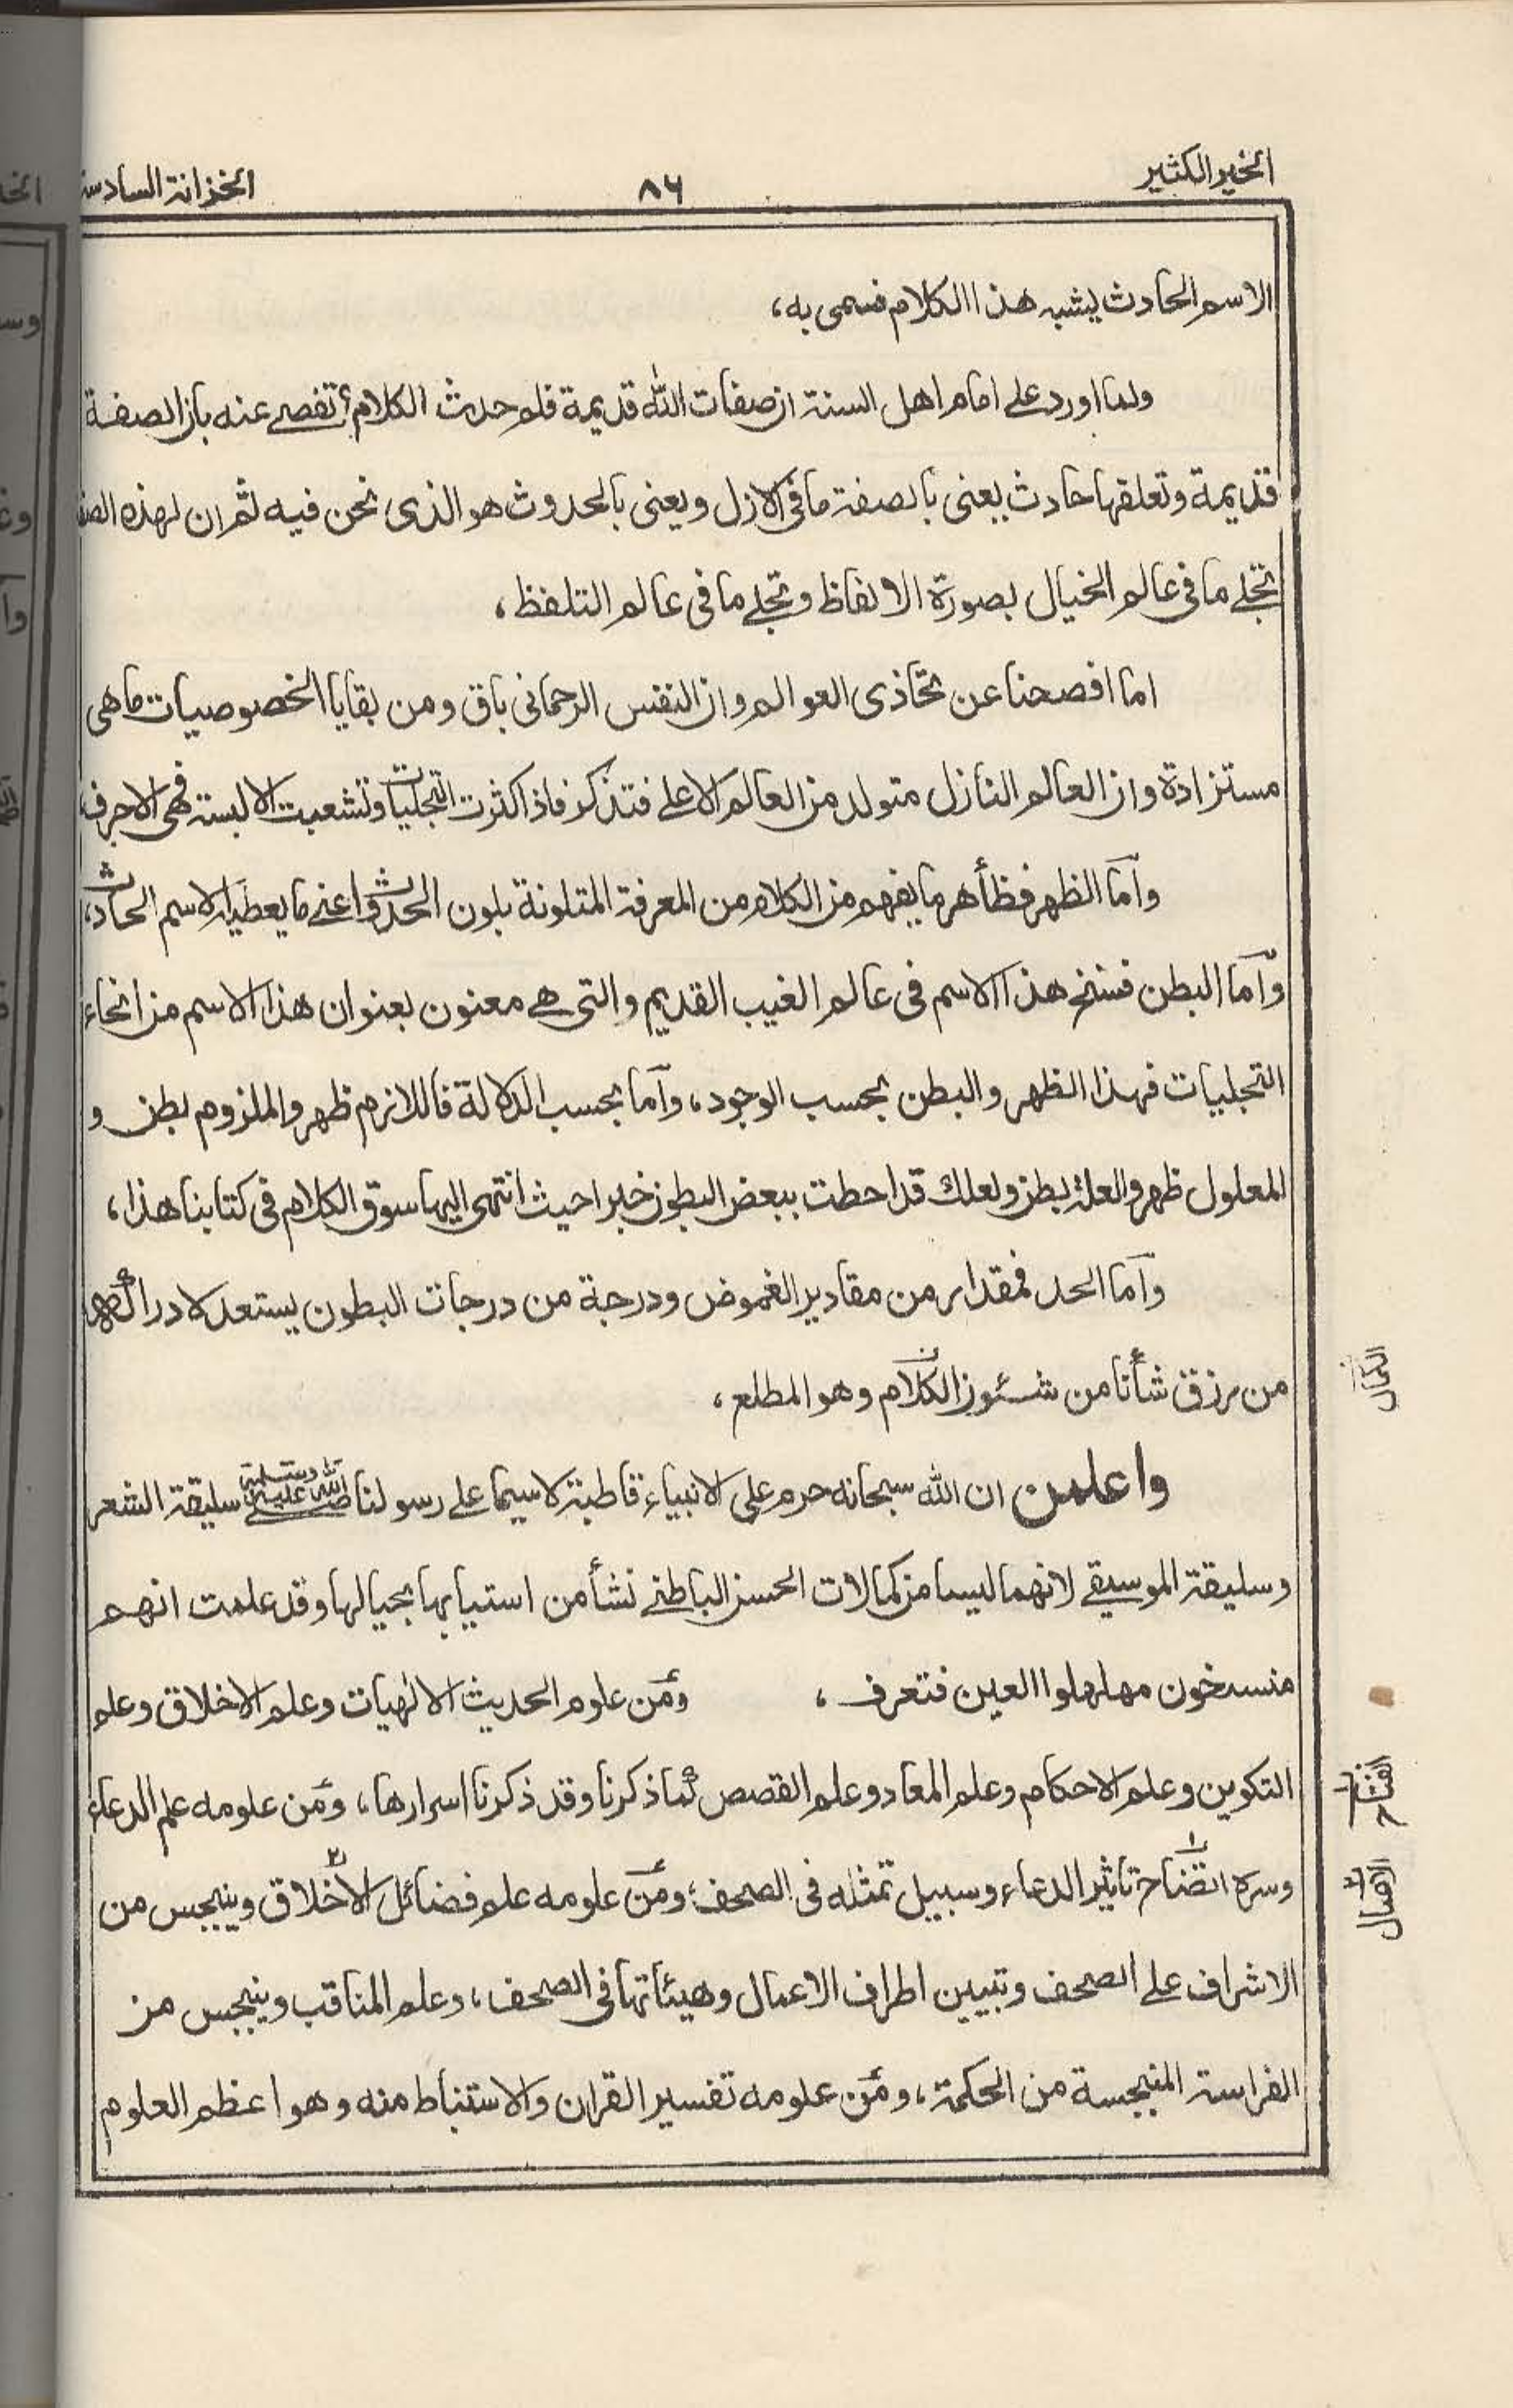 الخير الكثير
٨٦
الخزانة السادسة
الاسم الحادث يشبه هذا الكلام فسمى به،
ولما اورد على امام اهل السنة ان صفات الله قديمة فلم حدث الكلام؟ تفصى عنه بان الصفة
قديمة وتعلقها حادث يعنى بالصفة ما فى الازل ويعنى بالحدوث هو الذى نحن فيه ثم ان لهذه
تجلى ما فى عالم الخيال بصورة الالفاظ وتجلى ما فى عالم التلفظ،
اما افصحنا عن تحاذى العوالم وان النفس الرحمانى باق ومن بقايا الخصوصيات ما هى
مستزادة وان العالم النازل متولد من العالم الاعلى فتذكر فاذا كثرت التجليات وتشعبت الالبسة فهى الاحرف
وأما الظهر فظاهر ما يفهم من الكلام من المعرفة المتلونة بلون الحدوث اعنى ما يعطيه الاسم الحادث،
وأما البطن فسنخ هذا الاسم فى عالم الغيب القديم والتى هى معنون بعنوان هذا الاسم من انحاء
التجليات فهذا الظهر والبطن بحسب الوجود، وأما بحسب الدلالة فاللازم ظهر والملزوم بطن و
المعلول ظهر والعلة بطن ولعلك قد احطت ببعض البطون خبرا حيث انتهى اليها سوق الكلام فى كتابنا هذا،
وأما الحد فمقدار من مقادير الغموض ودرجة من درجات البطون يستعد لادراكها
من رزق شأنا من شئون الكلام وهو المطلع،
واعلمن ان الله سبحانه حرم على الانبياء قاطبة لاسيما على رسولنا صلى الله عليه وسلم سليقة الشعر
وسليقة الموسيقى لانهما ليسا من كمالات الحسن الباطنى نشأ من استيابها بحيالها وقد علمت انهم
منسخون مهلهلوا العين فتعرف، ومن علوم الحديث الالهيات وعلم الاخلاق وعلم
التكوين وعلم الاحكام وعلم المعاد وعلم القصص كما ذكرنا وقد ذكرنا اسرارها، ومن علومه علم الدعاء
وسره اتضاح تاثير الدعاء وسبيل تمثله فى الصحف؛ ومن علومه علم فضائل الاخلاق وينبجس من
الاشراف على الصحف وتبيين اطراف الاعمال وهيئاتها فى الصحف، وعلم المناقب وينبجس من
الفراسة المنبجسة من الحكمة، ومن علومه تفسير القران والاستنباط منه وهو اعظم العلوم